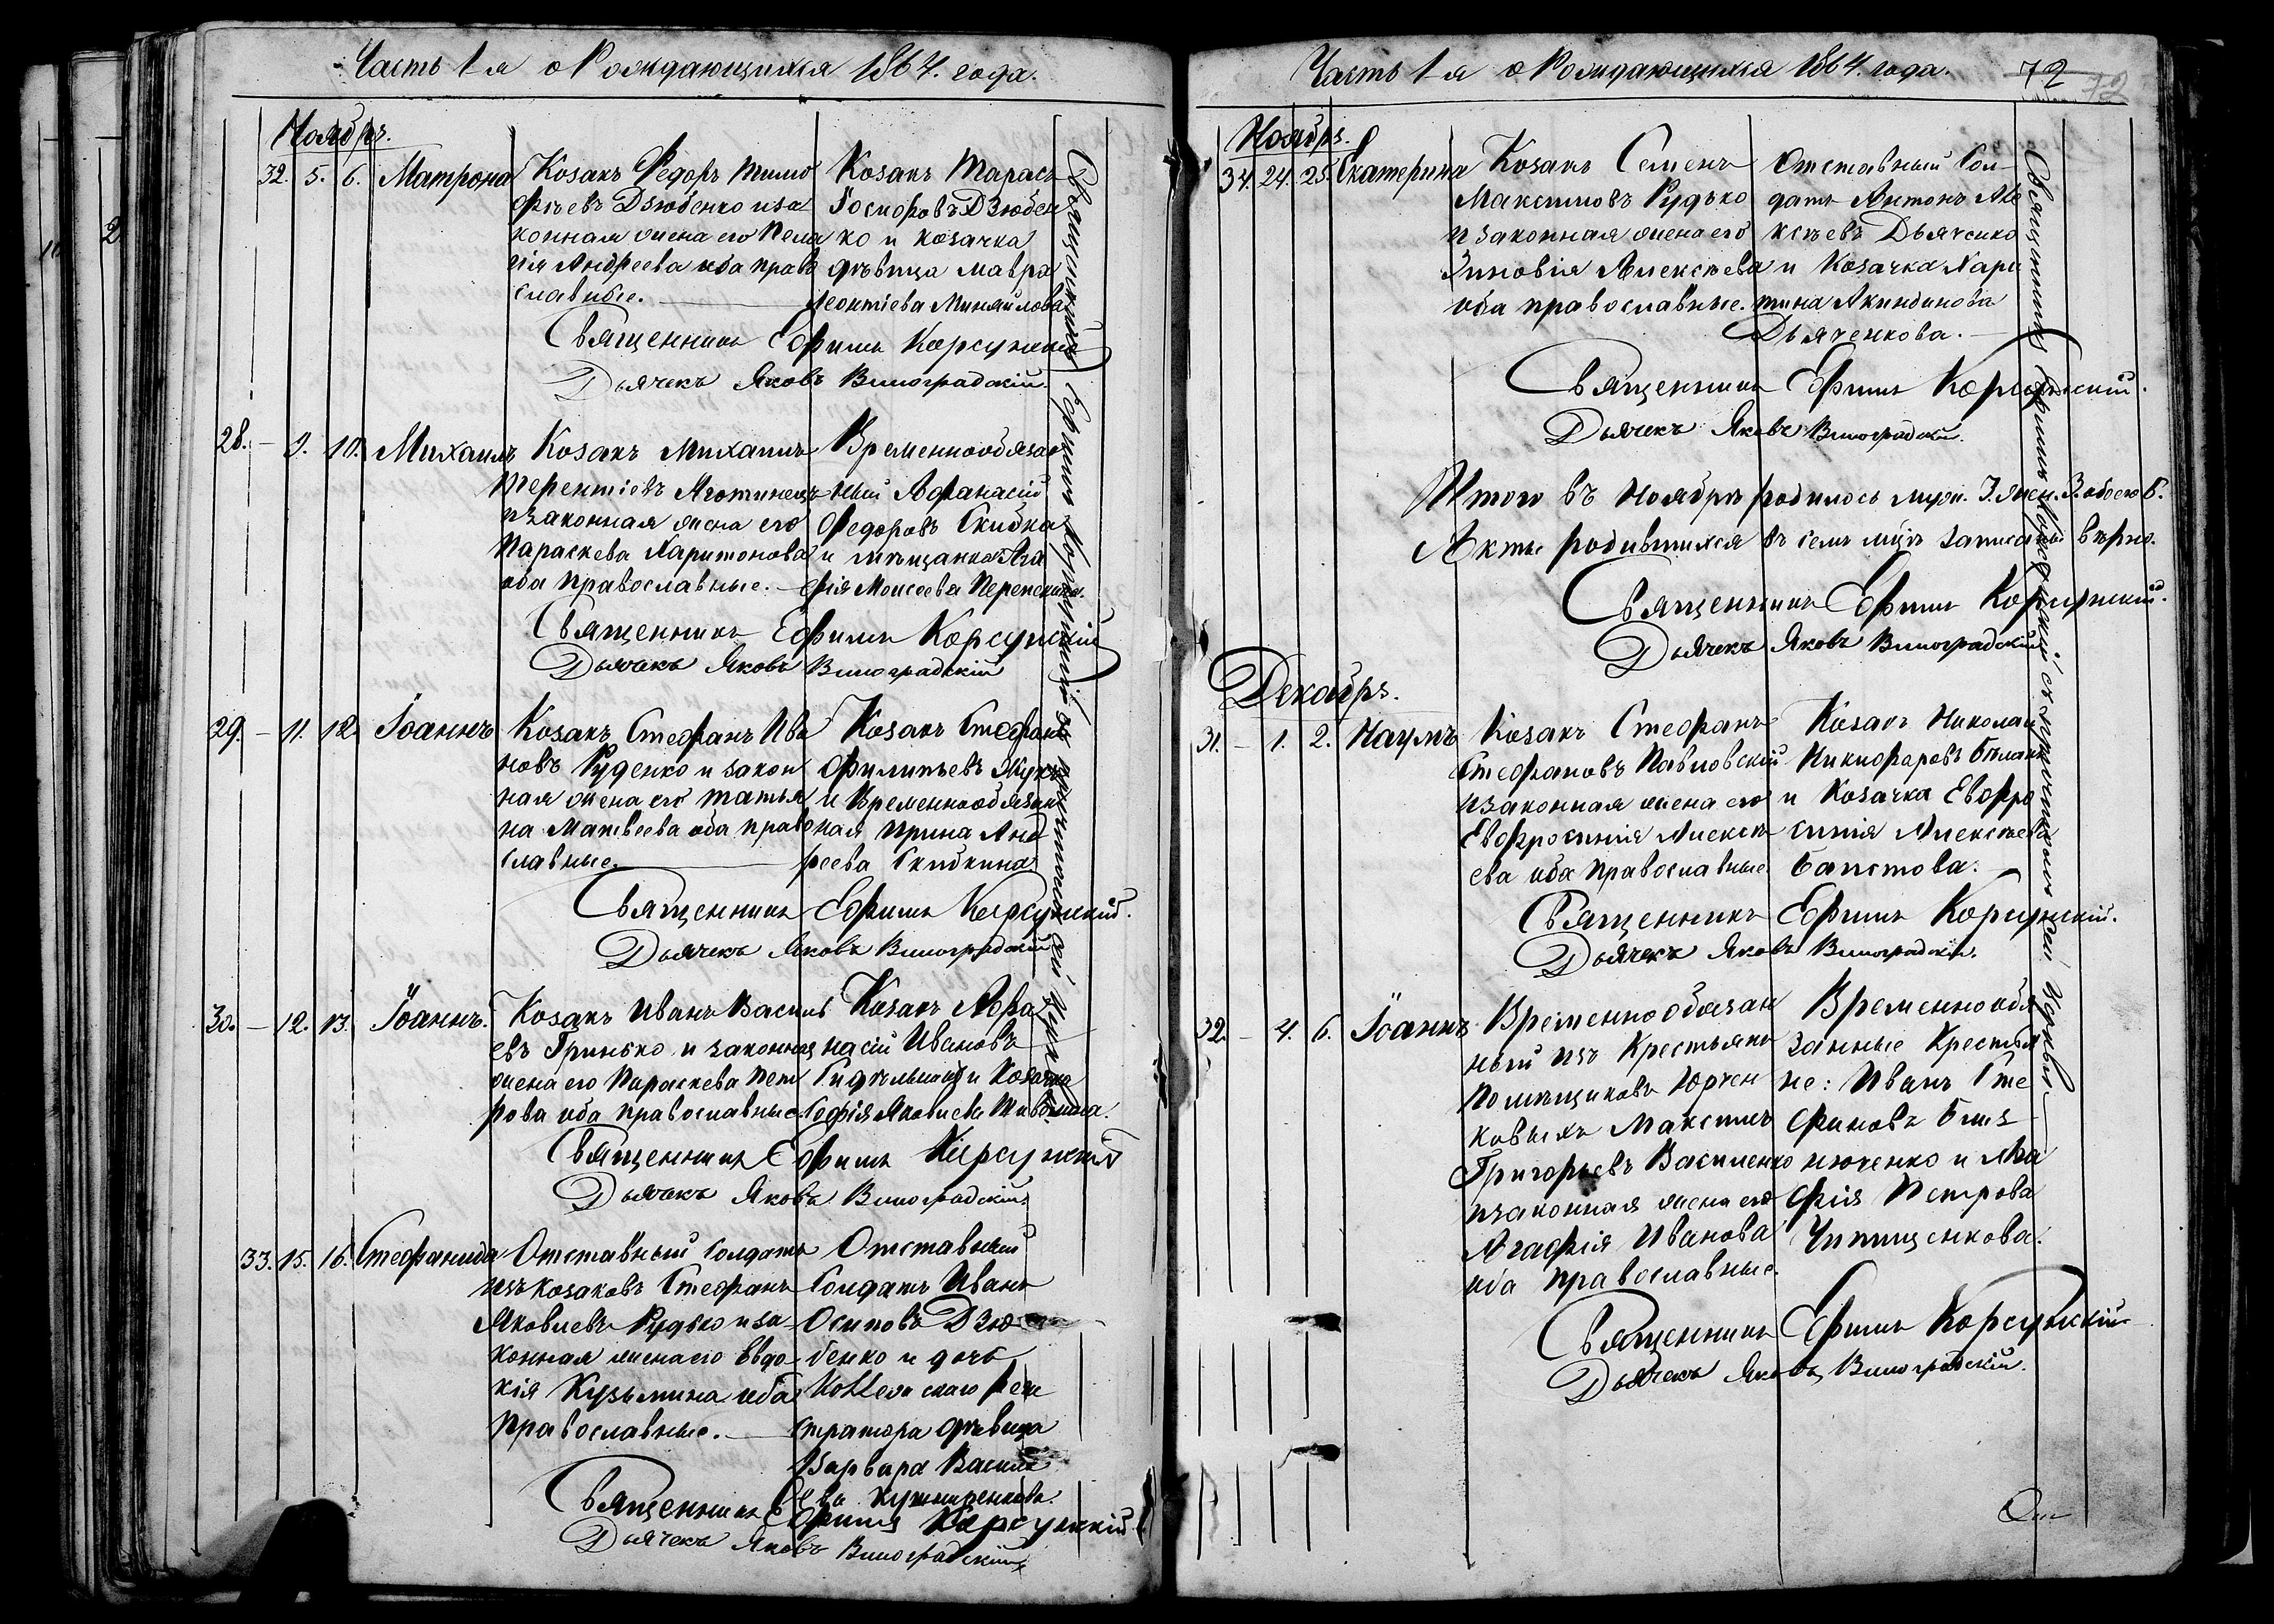 Часть 1я о Рождающихся 1864. года.
Ноябрь.
32. 5. 6. Матрона
Козакъ Ѳедоръ Тимо
фѣевъ Дзюбенко и за
конная жена его Пела
гія Андреева оба право
славные.
Козакъ Тарасъ
Іосифовъ Дзюбен
ко и козачка
дѣвица Мавра
Леонтіева Миняйлова
Священникъ Ефимъ Корсунскій
Дьячекъ Яковъ Виноградскій.
28. – 9. 10. Михаилъ
Козакъ Михаилъ
Терентіевъ Яготинецъ
и законная жена его
Параскева Харитонова
оба православные.
Временнообязан
ный Афанасій
Федоровъ Скибка
и мѣщанка Ага
фія Моисеева
Священникъ Ефимъ Корсунскій
Дьячекъ Яковъ Виноградскій
29. – 11. 12. Іоаннъ
Козакъ Стефанъ Ива
новъ Руденко и закон
ная жена его Татья
на Матвеева оба право
славные.
Козакъ Стефанъ
Филипьевъ
и Временнообязан
ная Ирина Анд
реева Скибкина
Священникъ Ефимъ Корсунскій.
Дьячекъ Яковъ Виноградскій
30. – 12. 13. Іоаннъ.
Козакъ Иванъ Василь
евъ Гринько и законная
жена его Параскева Пет
рова оба православные.
Козакъ Афа
насій Ивановъ
и Козачка
Софія Яковлева
Священникъ Ефимъ Корсунскій
Дьячекъ Яковъ Виноградскій.
33. 15. 16. Стефанида
Отставный солдатъ
изъ козаковъ Стефанъ
Яковлевъ Рудько и за
конная жена его Евдо
кія Кузьмина оба
православные.
Отставный
Солдатъ Иванъ
Осиповъ Дзю
бенко и дочь
Коллежскаго реги
стратора дѣвица
Варвара Василь
ева Кушниренкова.
Священникъ Ефимъ Корсунскій.
Дьячекъ Яковъ Виноградскій
Священникъ Ефимъ Корсунскій съ причтомъ сей Церкви
Часть 1я о Рождающихся 1864. года.
72
72
Ноябрь.
34. 24. 25. Екатерина
Козакъ Семенъ
Максимовъ Рудько
и законная жена его
Зиновія Алексѣева
оба православные.
Отставный Сол
датъ Антонъ Але
ксѣевъ Дьяченко
и Козачка Хари
тина Акиндинова
Дьяченкова.
Священникъ Ефимъ Корсунскій.
Дьячекъ Яковъ Виноградскій.
Итого въ Ноябрѣ родилось муж. 3. жен. 3. обоего 6.
Акты родившихся въ семъ мцѣ записаны вѣрно.
Священникъ Ефимъ Корсунскій.
Дьячекъ Яковъ Виноградскій
Декабрь.
31. – 1. 2. Наумъ
Козакъ Стефанъ
Стефановъ Павловскій
и законная жена его
Евфросинія Алексѣ
ева оба православные.
Козакъ Николай
Никифоровъ
и Козачка Евфро
синія Алексѣева
Баистова.
Священникъ Ефимъ Корсунскій.
Дьячекъ Яковъ Виноградскій.
32. – 4. 6. Іоаннъ
Временно обязан
ный изъ Крестьянъ
Помѣщиковъ Юрчен
ковыхъ Максимъ
Григорьевъ Василенко
и законная жена его
Агафія Иванова
оба православные.
Временно обя
занные Крестья
не: Иванъ Сте
фановъ Близ
нюченко и Ага
фія Петрова
Священникъ Ефимъ Корсунскій
Дьячекъ Яковъ Виноградскій.
Священникъ Ефимъ Корсунскій съ причтомъ сей Церкви